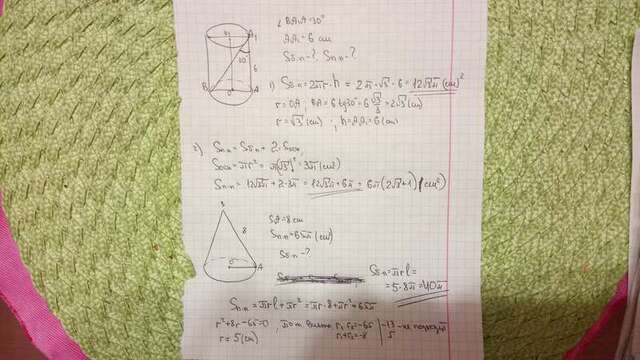 ∠BA₁A=30°
AA₁=6 см
Sб.п-? Sп.п-?
1) Sб.п=2πr·h = 2π·√3·6 = 12√3π (см)²
r=OA; BA=6 tg30°=6·√3/3=2√3(см)
r=√3(см); h=AA₁=6(см)
2) Sп.п = Sб.п + 2·Sосн
Sосн=πr²=π(√3)²=3π(см²)
Sп.п=12√3π+2·3π=12√3π+6π=6π(2√3+1)(см²)
SA=8см
Sп.п=65π(см²)
Sб.п-?
Sб.п=πrl=
=5·8π=40π
Sп.п=πrl+πr²=πr·8+πr²=65π
r²+8r-65=0, по т. Виета r₁·r₂=-65
r₁+r₂=-8
-13-не подходит
5
r=5(см)